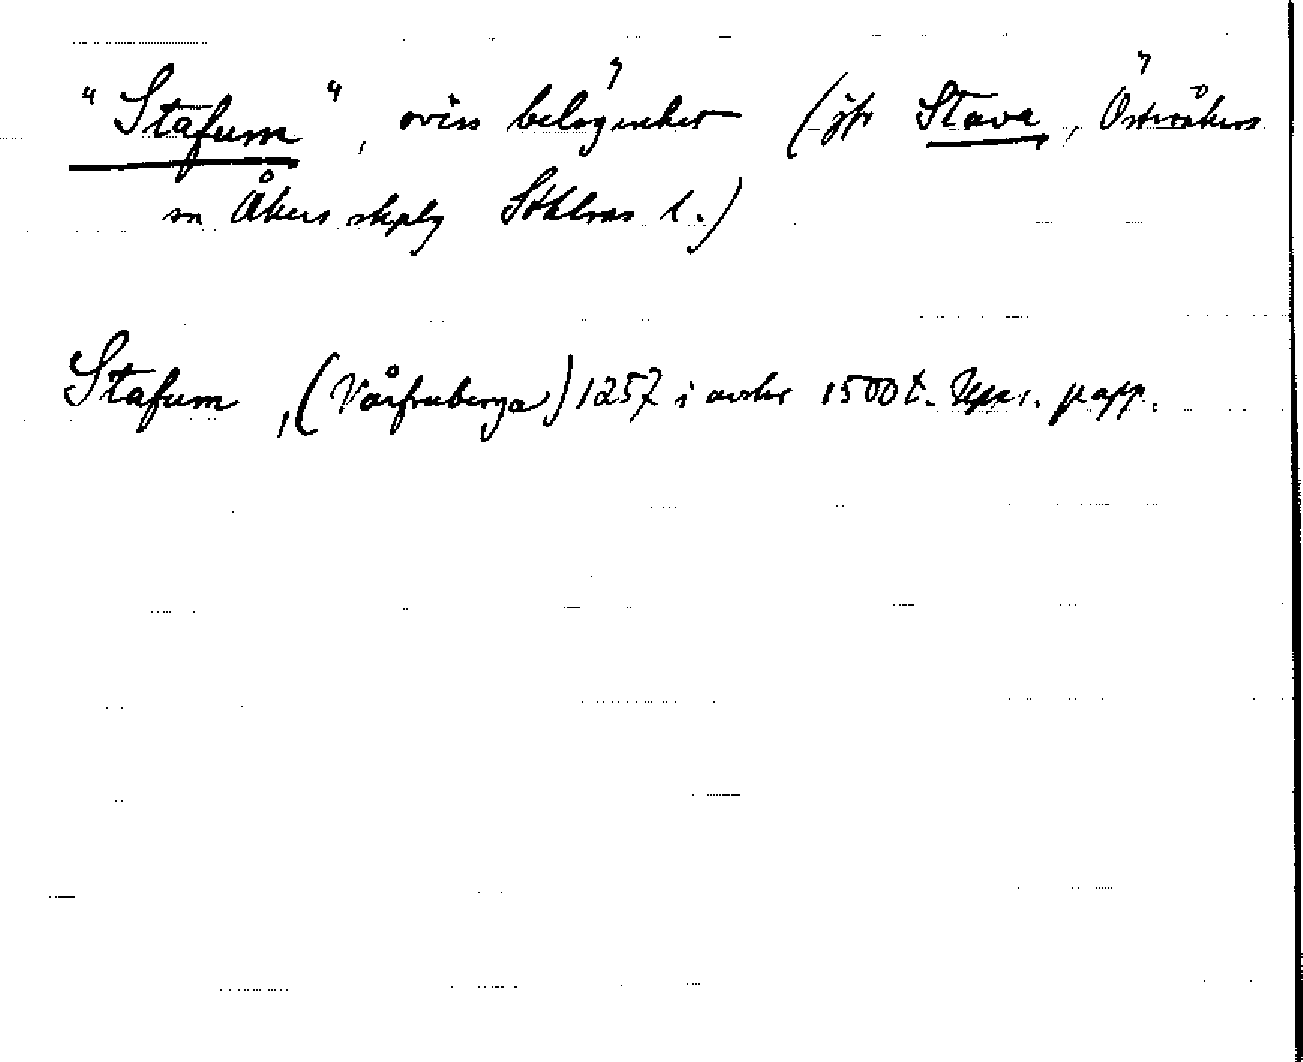 "Stafum", oviss belägenhet (jfr Stava, Österåkers
sn Åkers skplg Sthlms l.)
Stafum, (Vårfruberga) 1257 i avskr 1500 t. Upps. papp.